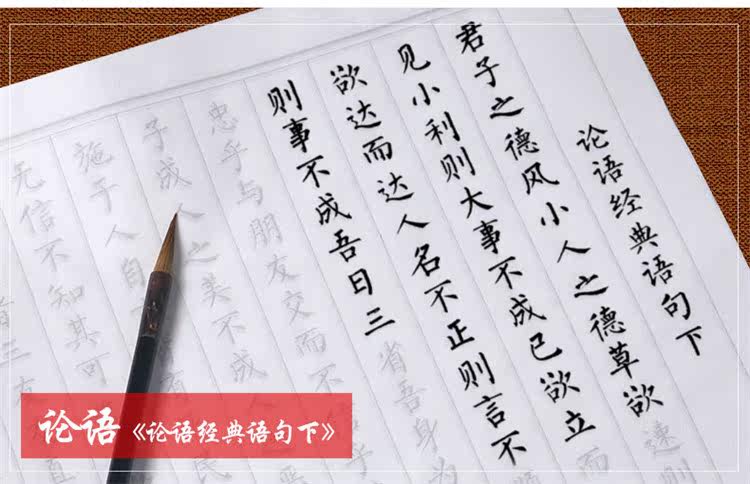 论语经典语句下
君子之德风小人之德草欲速则
见小利则大事不成已欲立而
欲达而达人名不正则言不
则事不成吾日三省吾身为
忠乎与朋友交而不
子成人之美不成人
施于人自
无信不知其可
论语《论语经典语句下》